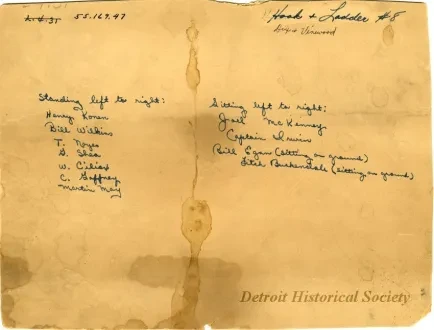 55.169.47
Hook & Ladder #8
Vinewood
Standing left to right:
Henry Konen
Bill Wilkins
T. Noyes
D. Shea
W.
C. Gaffney
Martin May
Sitting left to right:
Joel McKenney
Captain Irwin
Bill Egan (sitting on ground)
Butch Burkendale (sitting on ground)
Detroit Historical Society